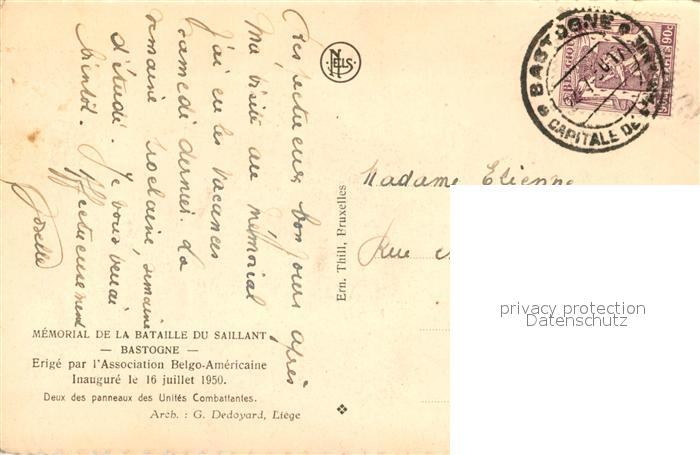 Affectueux bonjours après
Ma visite au mémorial
J'ai eu les vacances
samedi dernier. La
semaine prochaine, semaine
d'étude. Je vous verrai
bientôt. Affectueusement
MÉMORIAL DE LA BATAILLE DU SAILLANT
— BASTOGNE —
Erigé par l'Association Belgo-Américaine
Inauguré le 16 juillet 1950.
Deux des panneaux des Unités Combattantes.
Arch. : G. Dedoyard, Liège
Ern. Thill, Bruxelles
BASTOGNE
CAPITALE DE
BELGIQUE
90c
Madame Etienne
Rue
privacy protection
Datenschutz